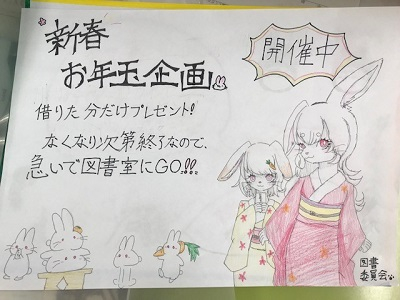 新春
お年玉企画
開催中
借りた分だけプレゼント!
なくなり次第終了なので、
急いで図書室にGO!!!
図書
委員会